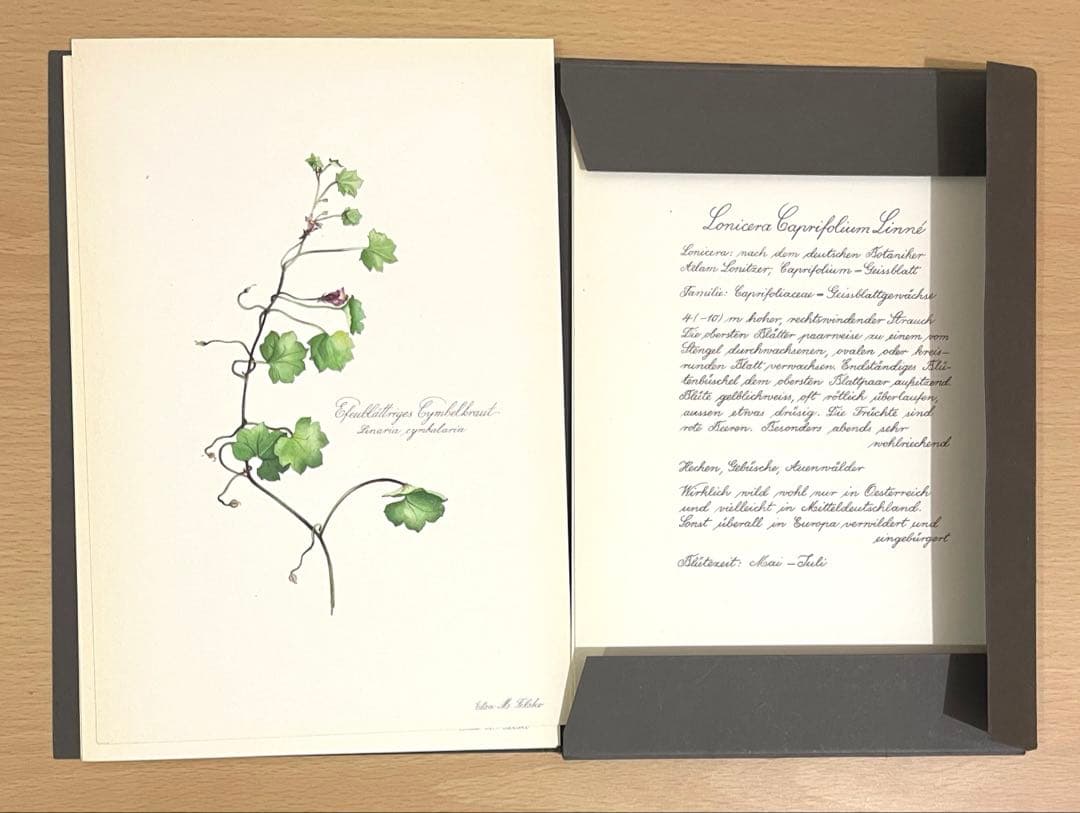 Efeublättriges Cymbelkraut
Linaria cymbalaria
Elsa M. Felsko
Lonicera Caprifolium Linné
Lonicera: nach dem deutschen Botaniker
Adam Lonitzer; Caprifolium = Geissblatt
Familie: Caprifoliaceae = Geissblattgewächse
4(-10) m hoher, rechtswindender Strauch
Die obersten Blätter paarweise zu einem vom
Stengel durchwachsenen, ovalen oder kreis-
runden Blatt verwachsen. Endständiges Blü-
tenbüschel dem obersten Blattpaar aufsitzend.
Blüte gelblichweiss, oft rötlich überlaufen,
aussen etwas drüsig. Die Früchte sind
rote Beeren. Besonders abends sehr
wohlriechend
Hecken, Gebüsche, Auenwälder
Wirklich wild wohl nur in Oesterreich
und vielleicht in Mitteldeutschland.
Sonst überall in Europa verwildert und
eingebürgert
Blütezeit: Mai - Juli